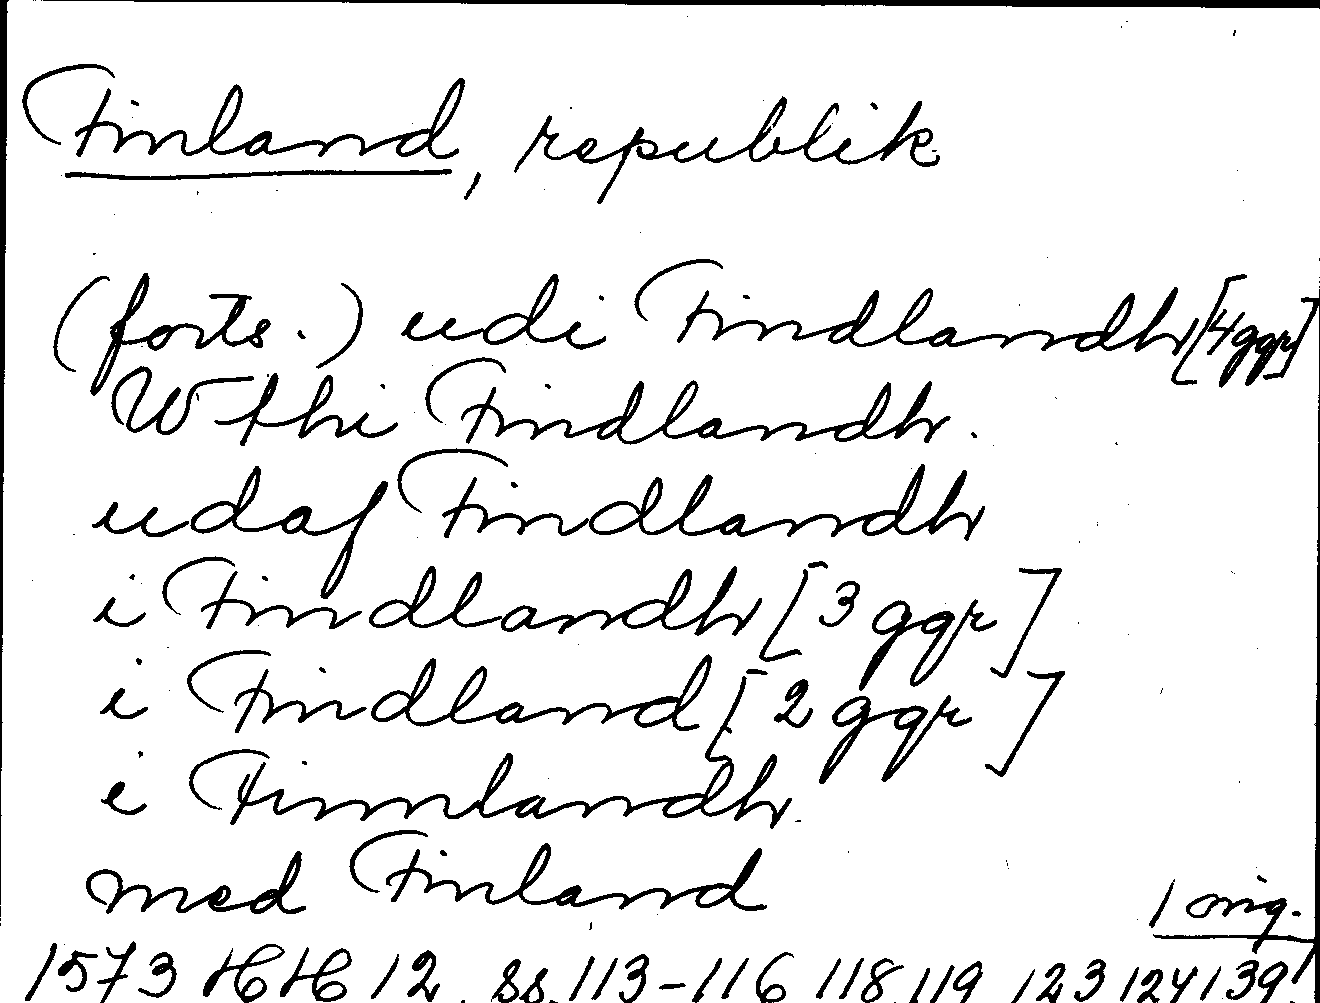 Finland, republik
(forts.) udi Findlandh [4 ggr]
Wthi Findlandh.
udaf Findlandh
i Findlandh [3 ggr]
i Findland [2 ggr]
i Finnlandh
med Finland
1 orig.
1573 HH 12. ss. 113-116 118, 119, 123, 124, 139